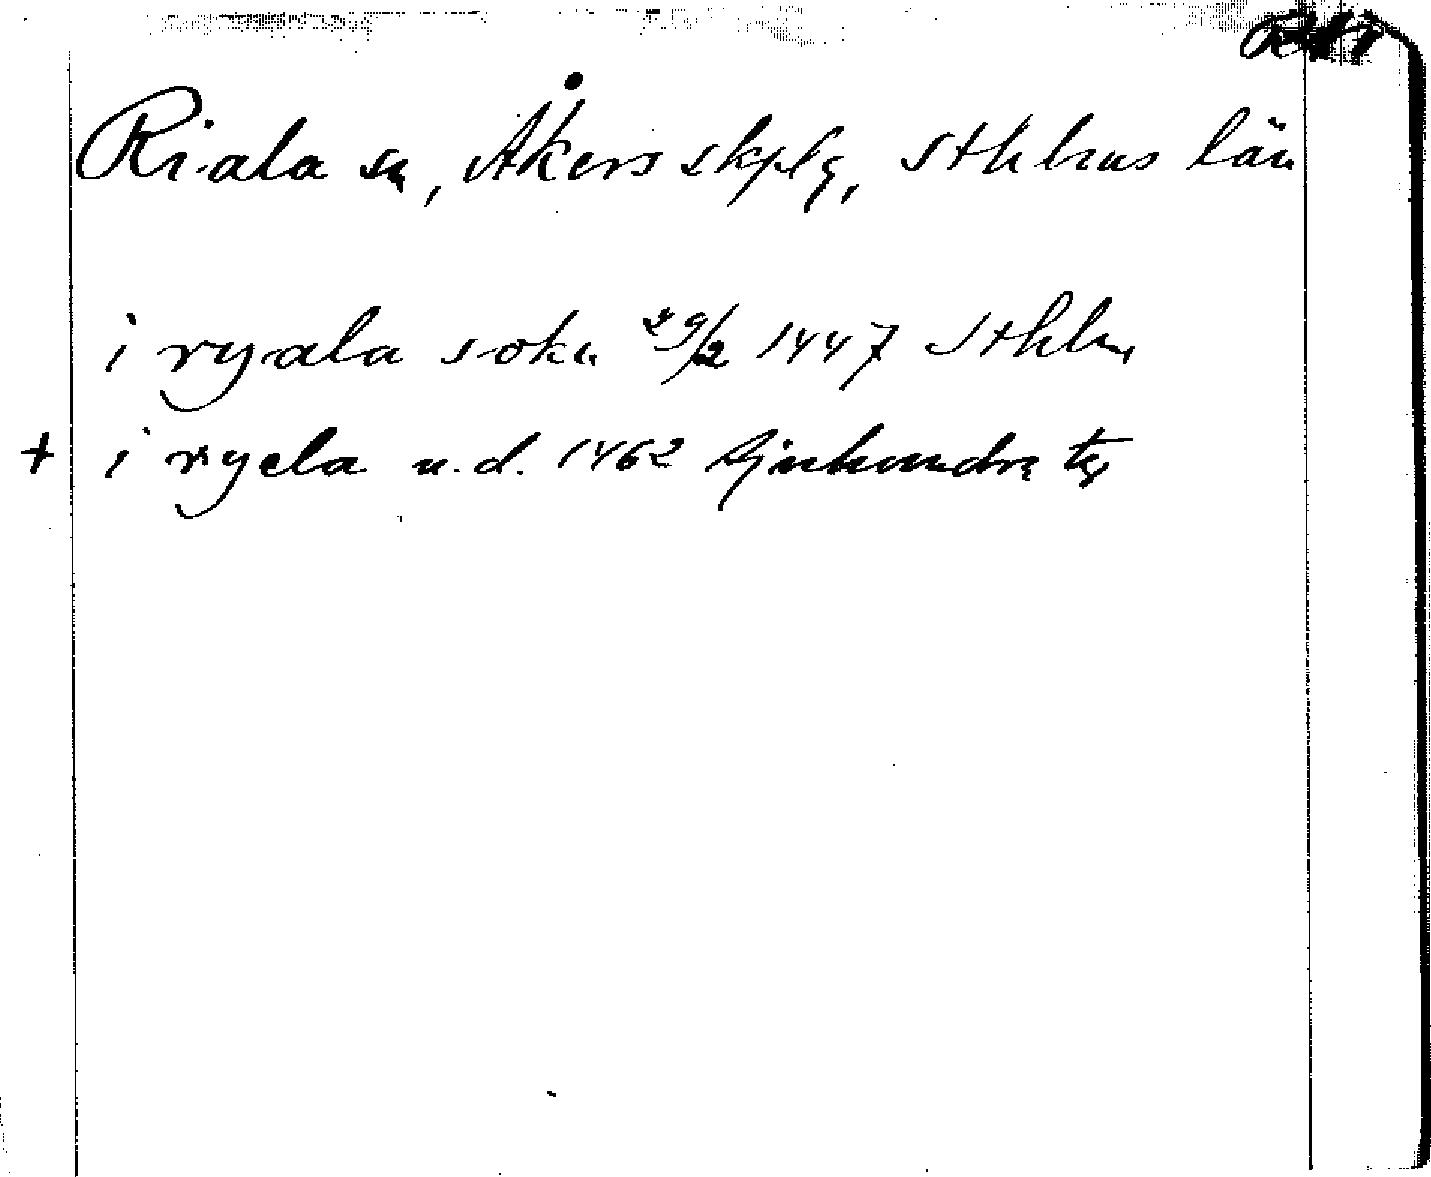 Riala sn, Åkers skplg, Sthlms län
i ryala sokn 29/2 1447 Sthlm
+ i ryela u.d. 1462 Sjuhundra tg